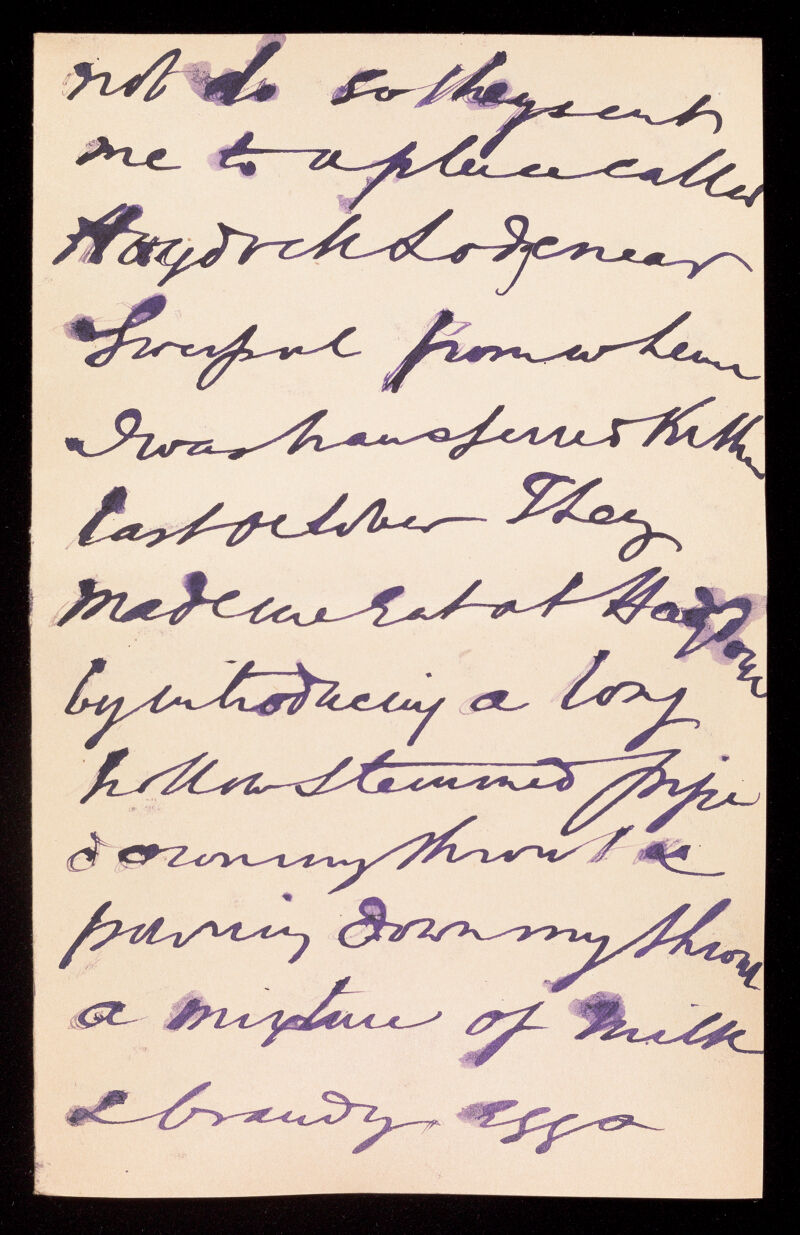 not do so they sent
me to a place called
Haydock Lodge near
Liverpool from whence
I was transferred hither
last October They
made me Eat at Haydock
by introducing a long
hollow stemmed pipe
down my throat &
pouring down my throat
a mixture of milk
& brandy eggs